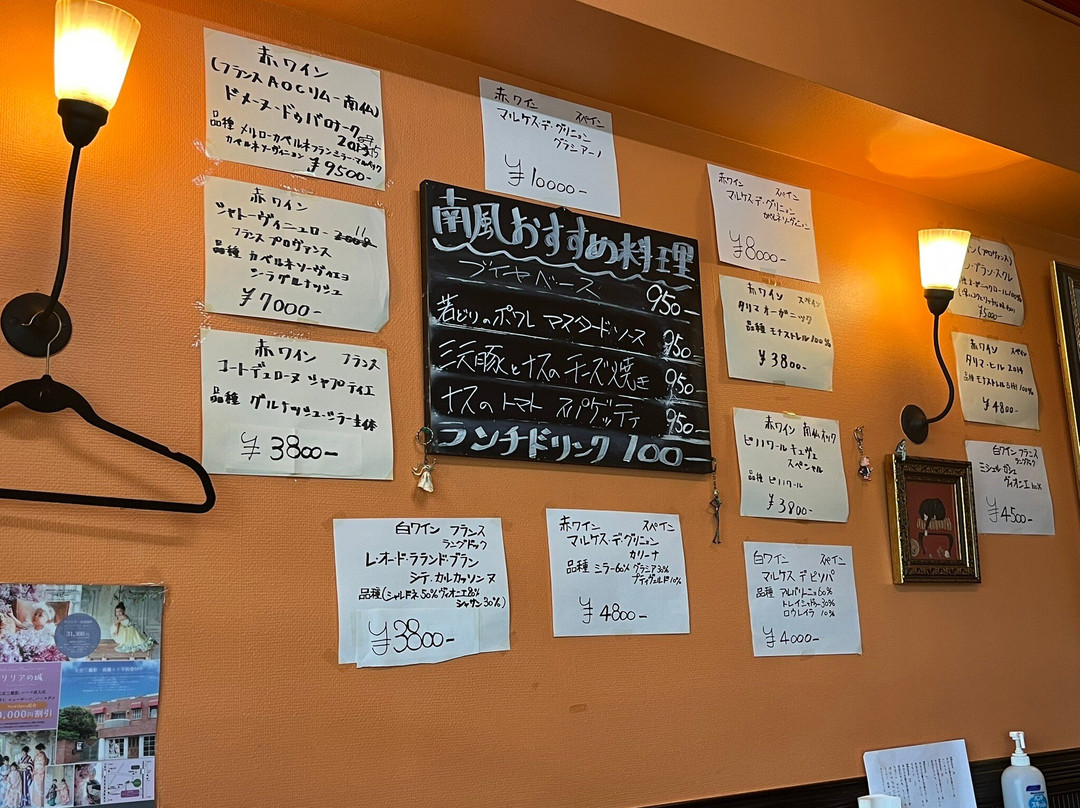 赤ワイン
(フランス AOCリムー南仏)
ドメーヌ・ドゥバロナーク
品種 メルローカベルネフランシラー・マルベック
カベルネソーヴィニョン
¥9500-
赤ワイン
シャトーヴィニュロー
フランス プロヴァンス
品種 カベルネソーヴィニヨ
シラグルナッシュ
¥7000-
赤ワイン フランス
コートデュローヌ シャプティエ
品種 グルナッシュ・シラー主体
¥3800-
赤ワイン スペイン
マルケス・デ・グリニョン
グラシアーノ
¥10000-
南風おすすめ料理
ブイヤベース 950-
若どりのポワレ マスタードソース 950-
三元豚とナスのチーズ焼き 950-
ナスのトマト スパゲッティ 950-
ランチドリンク 100-
赤ワイン スペイン
マルケス・デ・グリニョン
カベルネソーヴィニョン
¥8000-
赤ワイン スペイン
タリマ オーガニック
品種 モナストレル 100%
¥3800-
赤ワイン 南仏ラングドック
ピノノワール キュヴェ
スペシャル
品種 ピノノワール
¥3800-
ン(プロヴァンス)
¥5000-
赤ワイン スペイン
タリマ・ヒル 2014
品種 モナストレル 100%
¥4800-
白ワイン フランス
ラングドック
ミシェル ガシェ
ヴィオニエ 100%
¥4500-
白ワイン フランス
ラングドック
レオード・ラランド・ブラン
シテ・カルカッソンヌ
品種(シャルドネ50%ヴィオニエ
シャサン30%)
¥3800-
赤ワイン スペイン
マルケス・デ・グリニョン
カリーナ
品種 シラー60% グラシア30%
プティヴェルド10%
¥4800-
白ワイン スペイン
マルケス デ ビソバ
品種 アルバリーニョ60%
トレイシャドゥラ30%
ロウレイラ 10%
¥4000-
31,300
リリアの城
4,000円割引